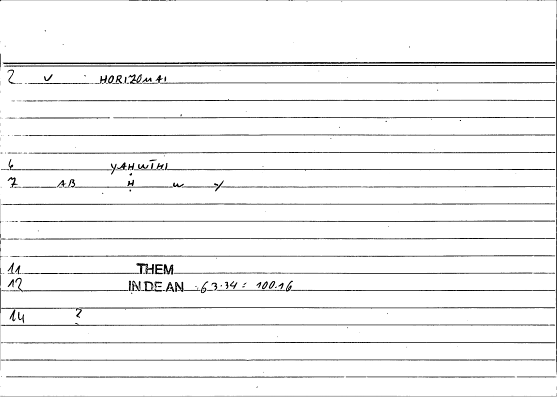 2 v HORIZONAI
6 YAHWĪHI
7 AB Ḥ̣ w y
11 THEM
12 IN.DE.AN 63.34 = 100.16
14 ?